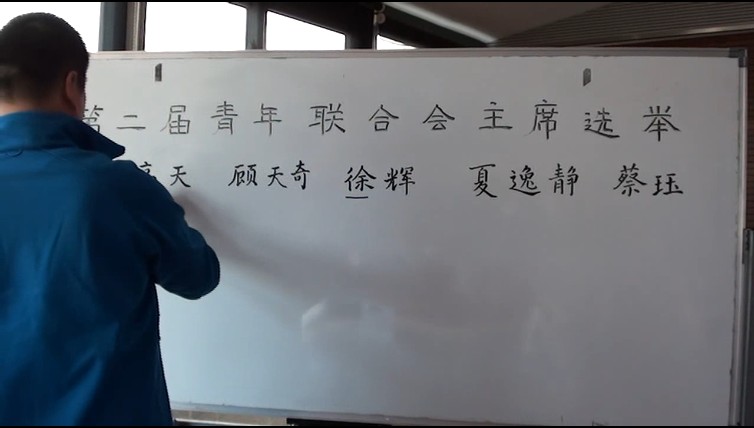 第二届青年联合会主席选举
天 顾天奇 徐辉 夏逸静 蔡珏